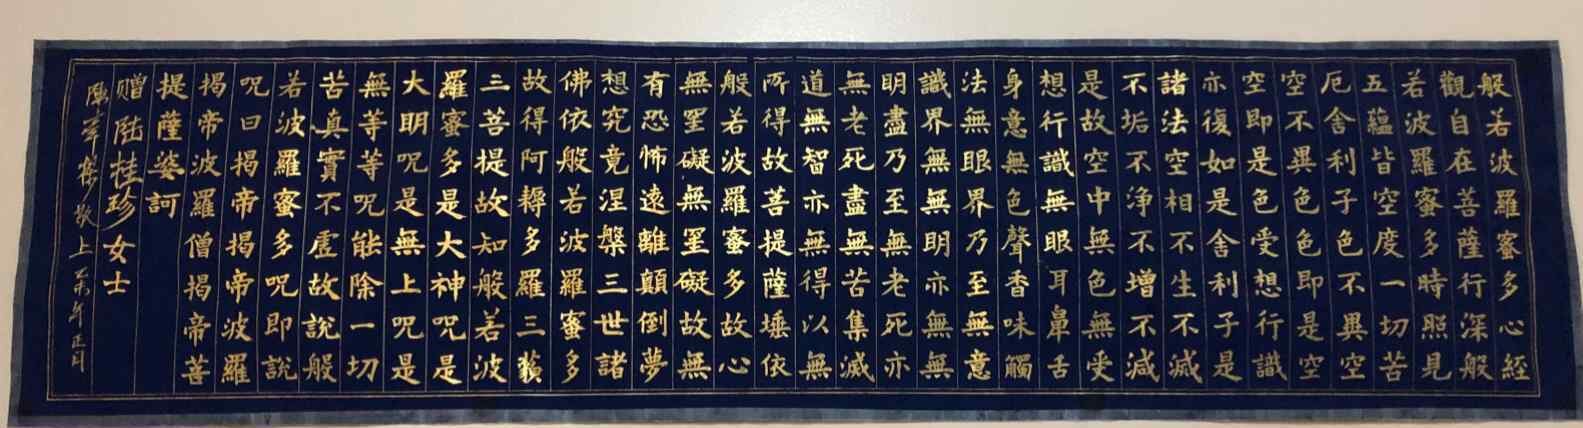 般若波羅蜜多心經
觀自在菩薩行深般
若波羅蜜多時照見
五蘊皆空度一切苦
厄舍利子色不異空
空不異色色即是空
空即是色受想行識
亦復如是舍利子是
諸法空相不生不滅
不垢不净不增不減
是故空中無色無受
想行識無眼耳鼻舌
身意無色聲香味觸
法無眼界乃至無意
識界無無明亦無無
明盡乃至無老死亦
無老死盡無苦集滅
道無智亦無得以無
所得故菩提薩埵依
般若波羅蜜多故心
無罣礙無罣礙故無
有恐怖遠離顛倒夢
想究竟涅槃三世諸
佛依般若波羅蜜多
故得阿耨多羅三藐
三菩提故知般若波
羅蜜多是大神呪是
大明呪是無上呪是
無等等呪能除一切
苦真實不虛故說般
若波羅蜜多呪即說
呪曰揭帝揭帝波羅
揭帝波羅僧揭帝菩
提薩婆訶
赠陆桂珍女士
敬上年正月